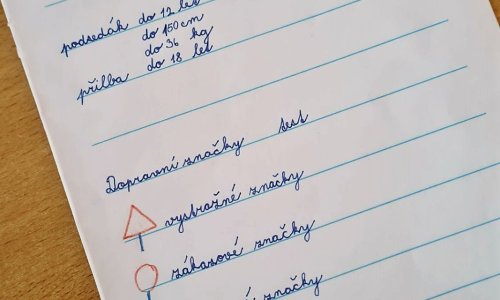 podsedák do 12 let
do 150 cm
do 36 kg
přilba do 18 let
Dopravní značky test
výstražné značky
zákazové značky
značky